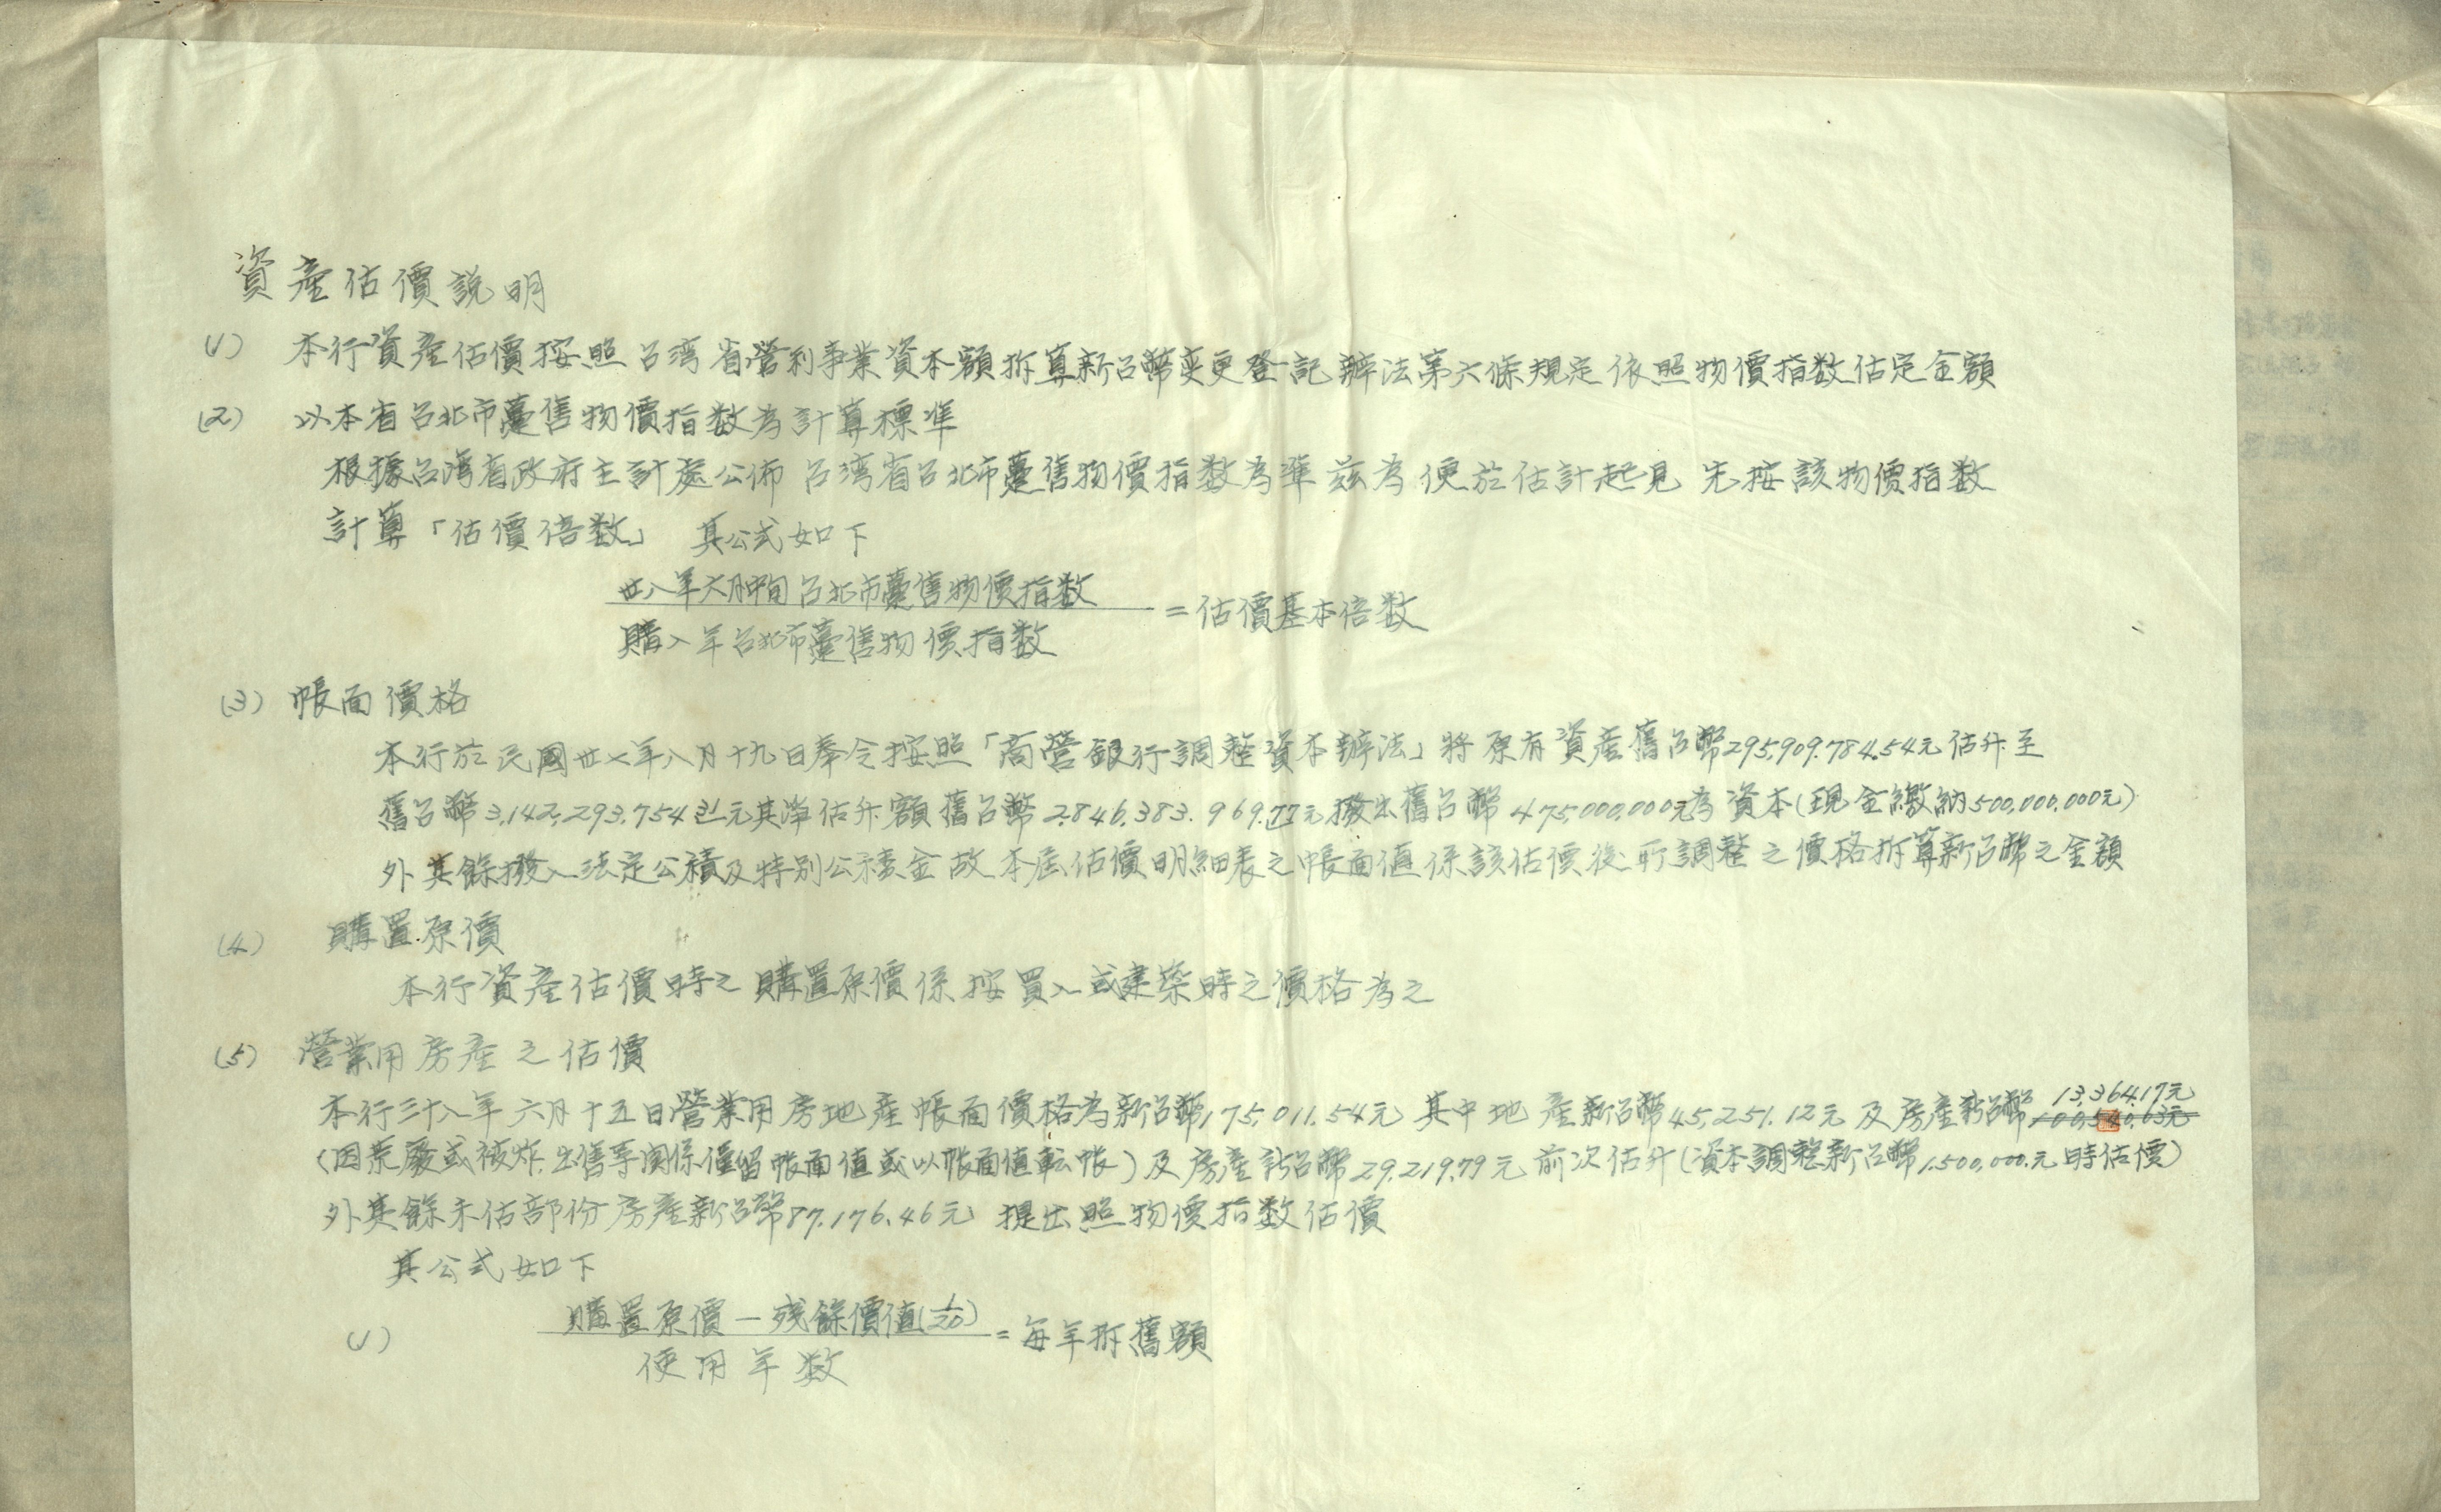 資產估價說明
(1) 本行資產估價按照台湾省營利事業資本額拆算新台幣変更登記辦法第六條規定依照物價指数估定金額
(2) 以本省台北市躉售物價指数為計算標準
根據台湾省政府主計處公佈台湾省台北市躉售物價指数為準 茲為便於估計起見 先按該物價指数
計算「估價倍数」 其公式如下
卅八年六月中旬台北市躉售物價指数
購入年台北市躉售物價指数
=估價基本倍数
(3) 帳面價格
本行於民國卅七年八月十九日奉令按照「商營銀行調整資本辦法」將原有資產舊台幣295,909.784.54元估升至
舊台幣3,142,293,754.31元其淨估升額舊台幣2,846,383.969.77元撥出舊台幣475,000,000元為資本(現金繳納500,000,000元)
外其餘撥入法定公積及特別公積金故本底估價明細表之帳面值係該估價後所調整之價格拆算新台幣之金額
(4) 購置原價
本行資產估價時之購置原價係按買入或建築時之價格為之
(5) 營業用房產之估價
本行三十八年六月十五日營業用房地產帳面價格為新台幣175,011.54元 其中地產新台幣45,251.12元及房產新台幣13,364.17元
(因荒廢或被炸.出售等関係僅留帳面值或以帳面值転帳)及房產新台幣29,219.79元前次估升(資本調整新台幣1,500,000.元時估價)
外其餘未估部份房產新台幣87,176.46元 提出照物價指数估價
其公式如下
(1) 購置原價－残餘價值(1/20)
使用年数
=每年拆舊額